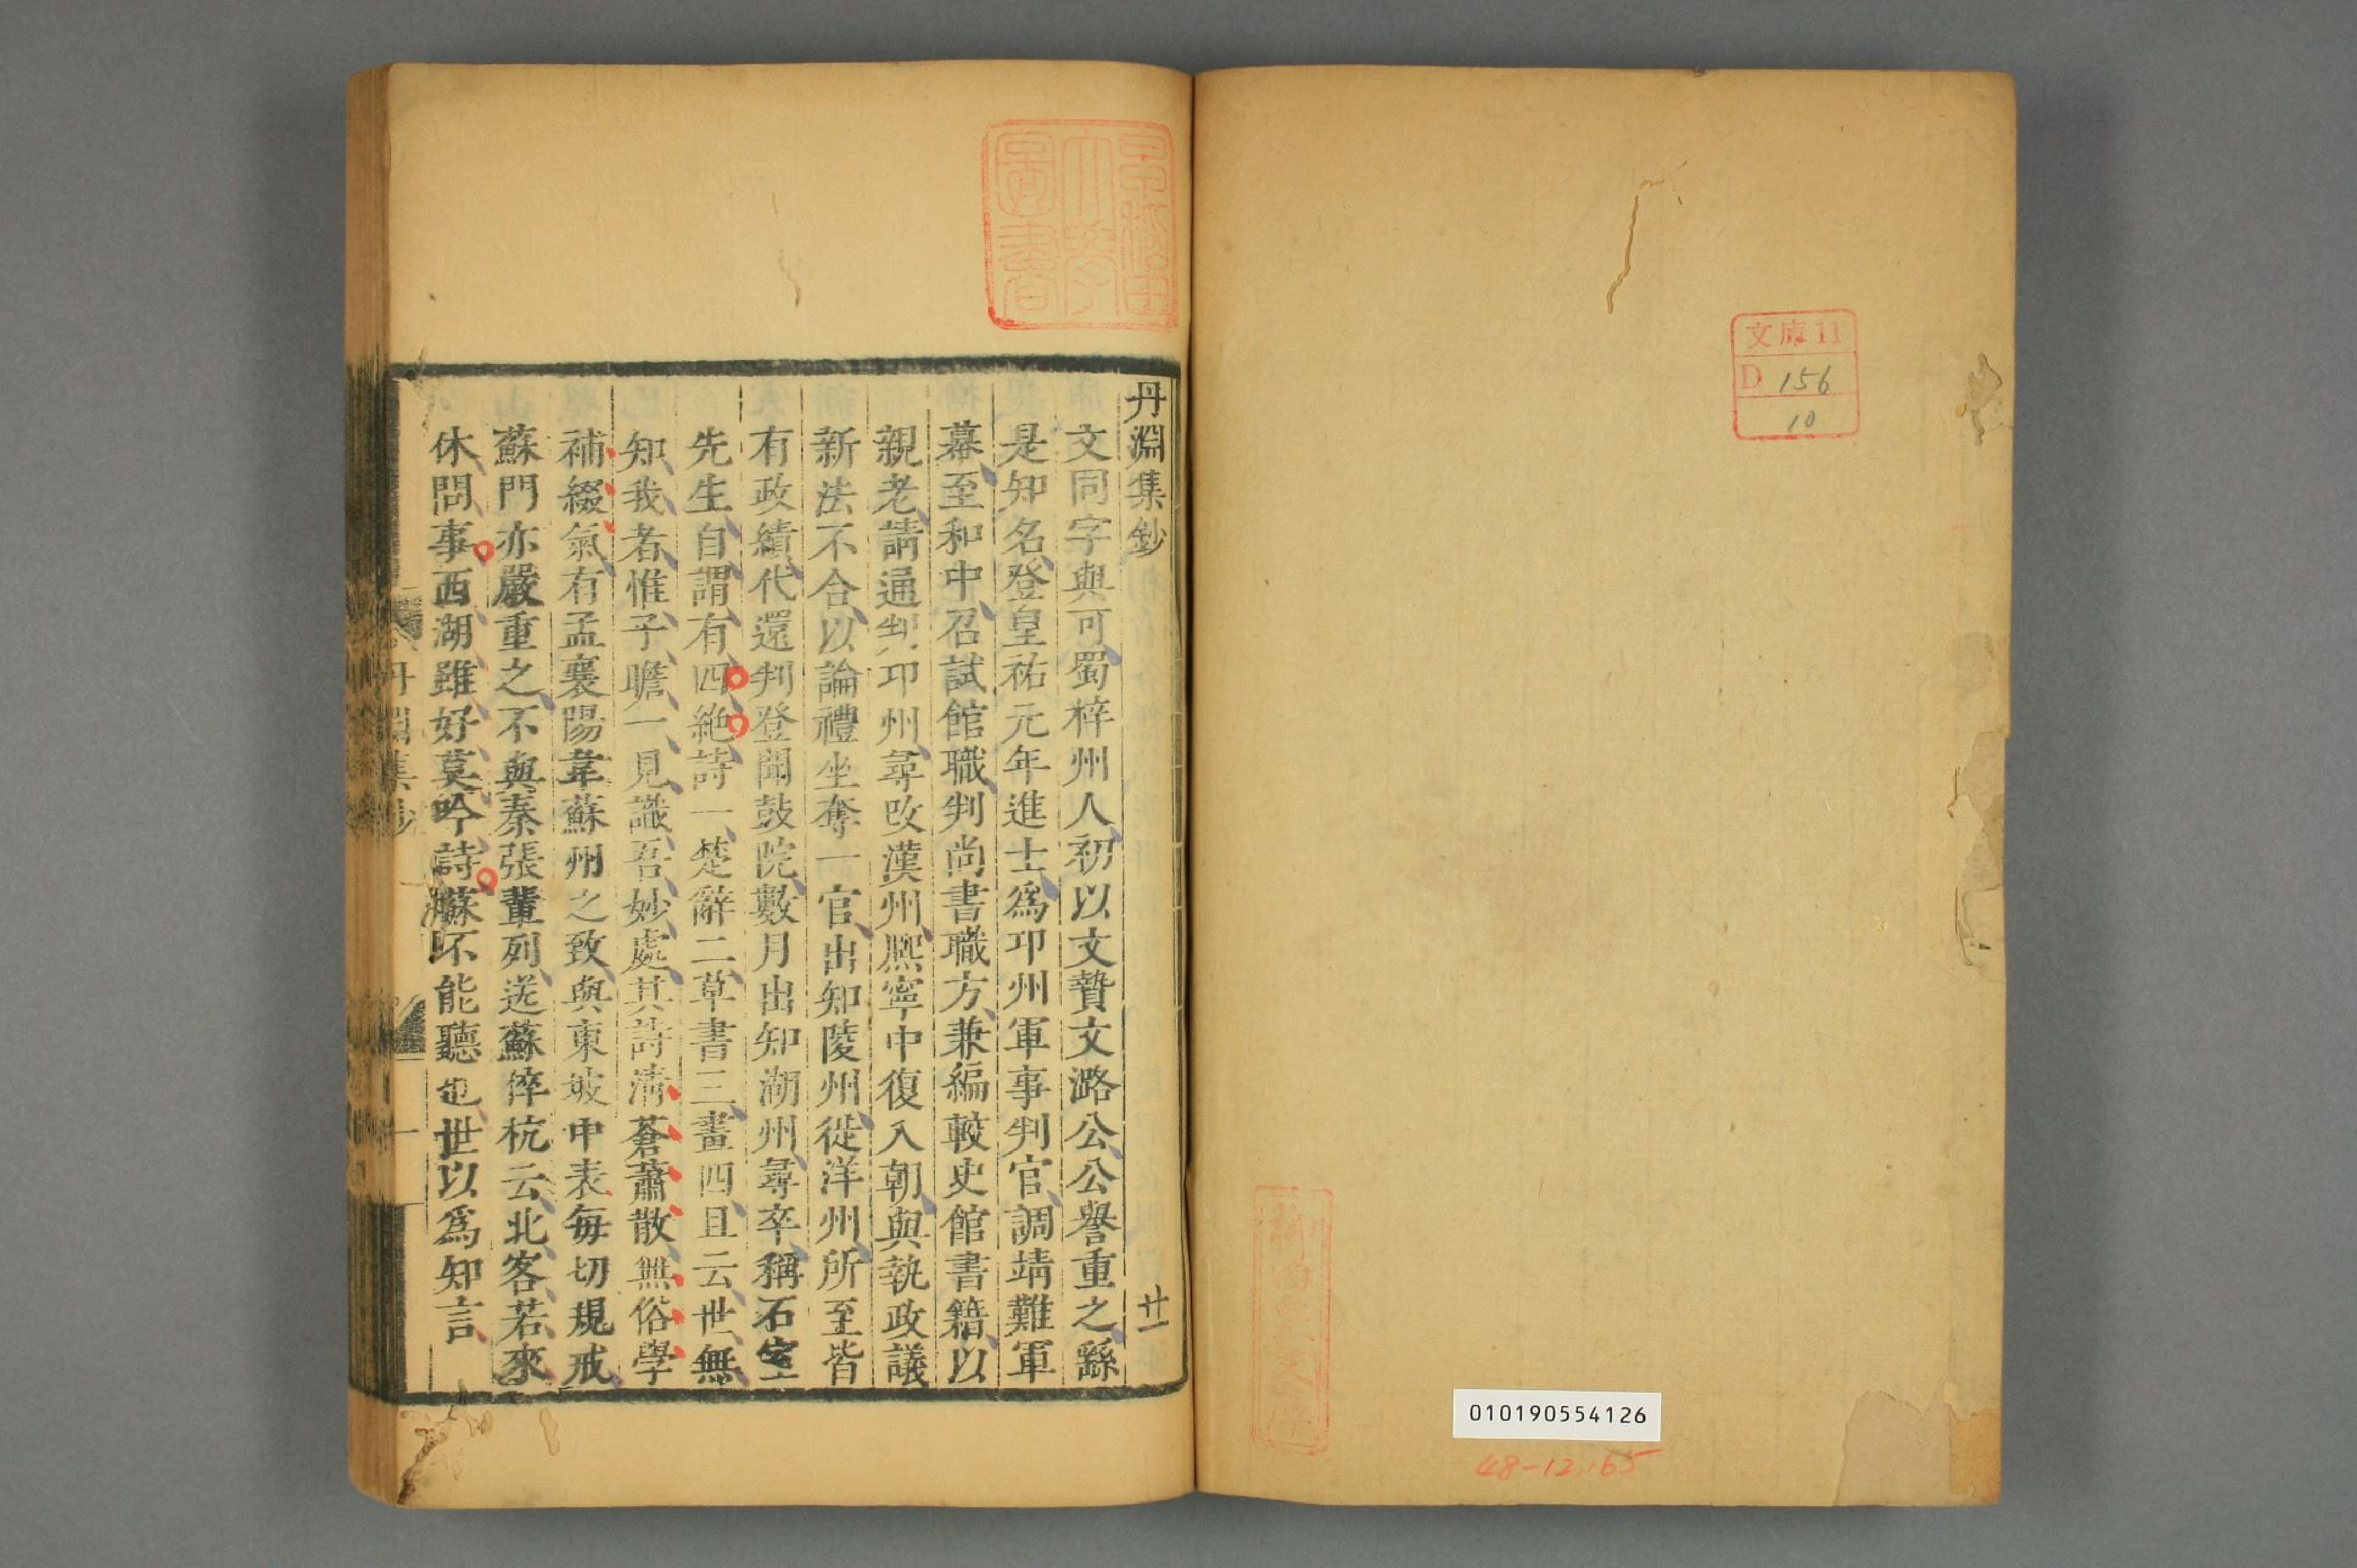 文庫11
D 156
10
010190554126
48-12,165
早稲田
大學
圖書
丹淵集鈔
廿一
文同字與可蜀梓州人初以文贄文潞公公譽重之繇
是知名登皇祐元年進士爲邛州軍事判官調靖難軍
幕至和中召試館職判尚書職方兼編較史館書籍以
親老請通判邛州尋改漢州熈寧中復入朝與執政議
新法不合以論禮坐奪一官出知陵州徙洋州所至皆
有政績代還判登聞鼓院數月出知湖州尋卒稱石室
先生自謂有四絶詩一楚辭二草書三畫四且云世無
知我者惟子瞻一見識吾妙處其詩清蒼蕭散無俗學
補綴氣有孟襄陽韋蘇州之致與東坡中表每切規戒
蘇門亦嚴重之不與秦張輩列送蘇倅杭云北客若來
休問事西湖雖好莫吟詩蘇不能聽也世以爲知言
丹淵集鈔
一